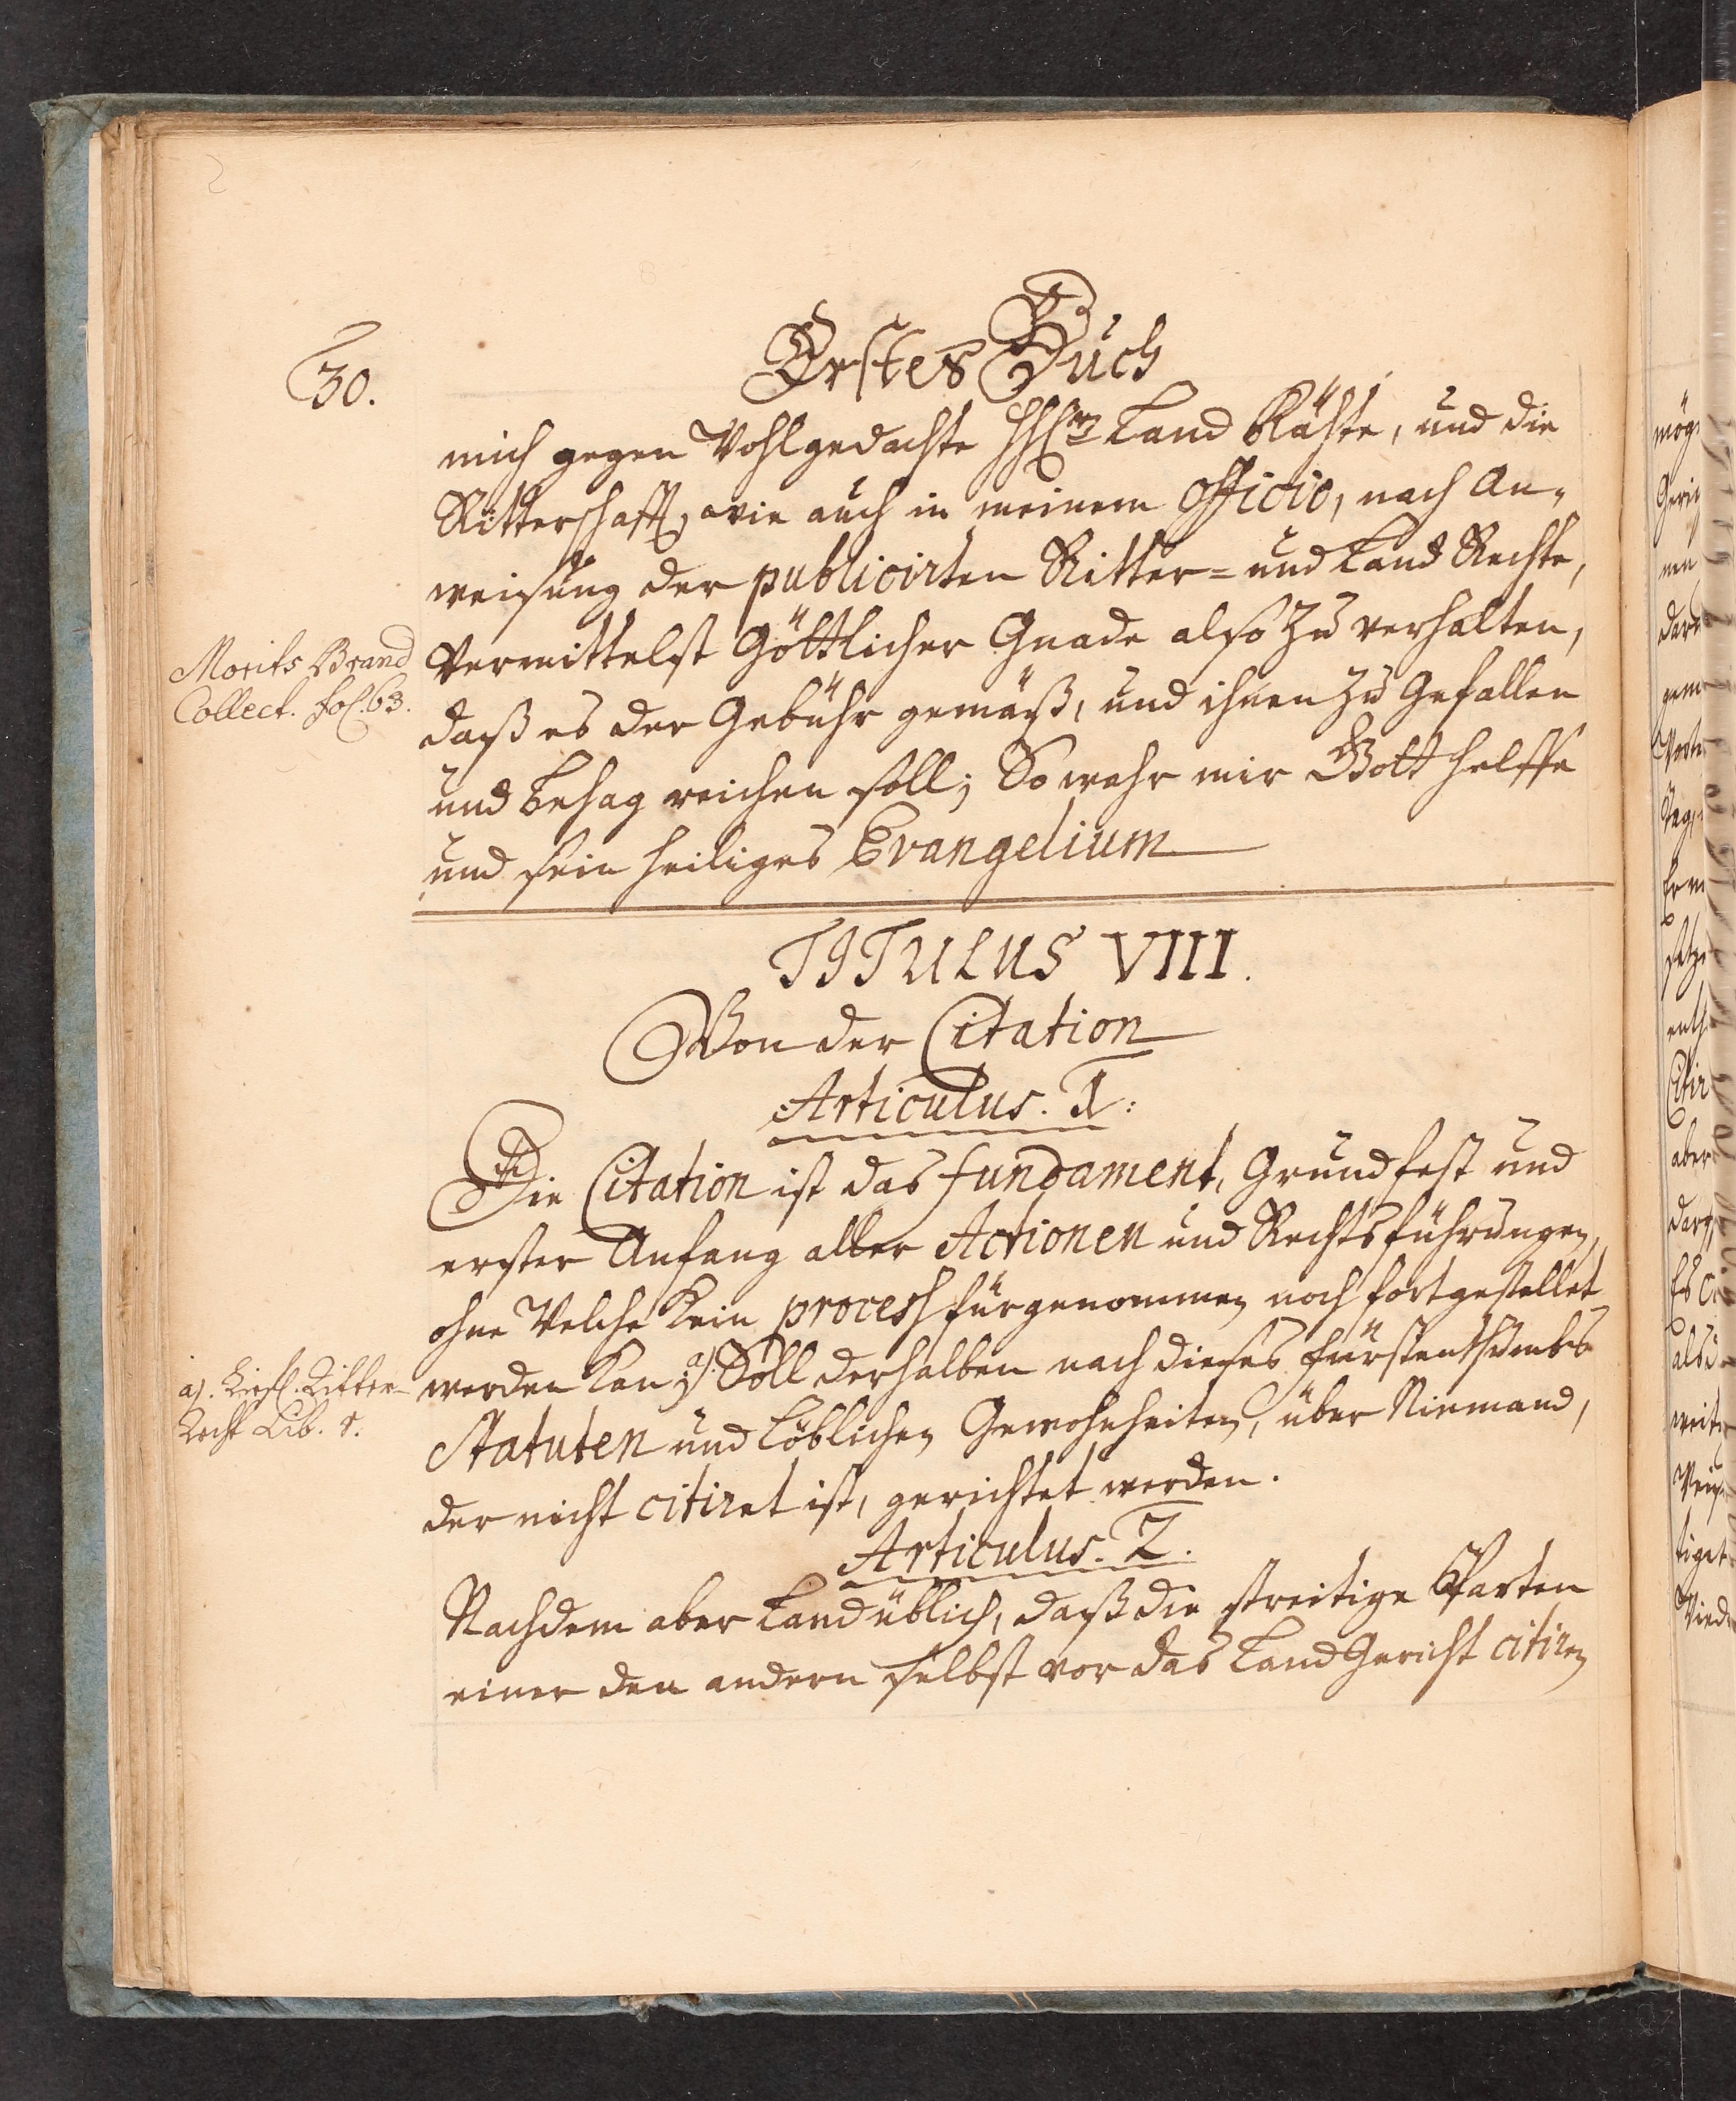 30.
Erstes Buch
mich gegen Wohlgedachte HHE Land Räthe, und die
Ritterschafft, wie auch in meinem Officio, nach An-
weisung der publicirten Ritter= und Land Rechte,
Vermittelst Göttlicher Gnade also zu verhalten,
daß es der Gebühr gemäß, und ihnen zu Gefallen
und behag reichen soll; So wahr mir Gott helffe
und sein heiliges Evangelium
Morits Brand
Collect. fol. 63.
TITULUS VIII.
Von der Citation
Articulus. 1:
Die Citation ist das fundament, Grundfest und
erster Anfang aller Actionen und Rechtsführungen,
ohne Welche kein process fürgenommen noch fortgestellet
werden kan; a). Soll derhalben nach dieses Fürstenthumbs
Statuten und Löblichen Gewohnheiten, über Niemand,
der nicht citiret ist, gerichtet werden.
a). Liefl. Ritter-
Recht Lib. 1.
Articulus. 2.
Nachdem aber Landüblich, daß die streitige Parten
einer den andern selbst vor das LandGericht citiren